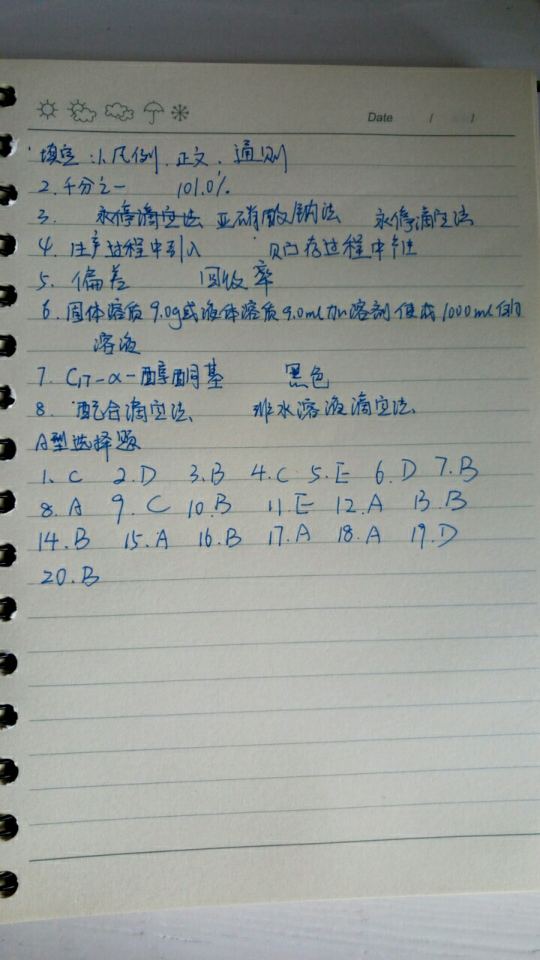 Date / /
填空:1.凡例、正文、通则
2.千分之一 101.0%
3. 永停滴定法 亚硝酸钠法 永停滴定法
4.生产过程中引入 贮存过程中产生
5.偏差 回收率
6.固体溶质9.0g或液体溶质9.0ml加溶剂使成1000ml的
溶液
7.C17-α-醇酮基 黑色
8.配合滴定法 非水溶液滴定法
A型选择题
1.C 2.D 3.B 4.C 5.E 6.D 7.B
8.A 9.C 10.B 11.E 12.A 13.B
14.B 15.A 16.B 17.A 18.A 19.D
20.B